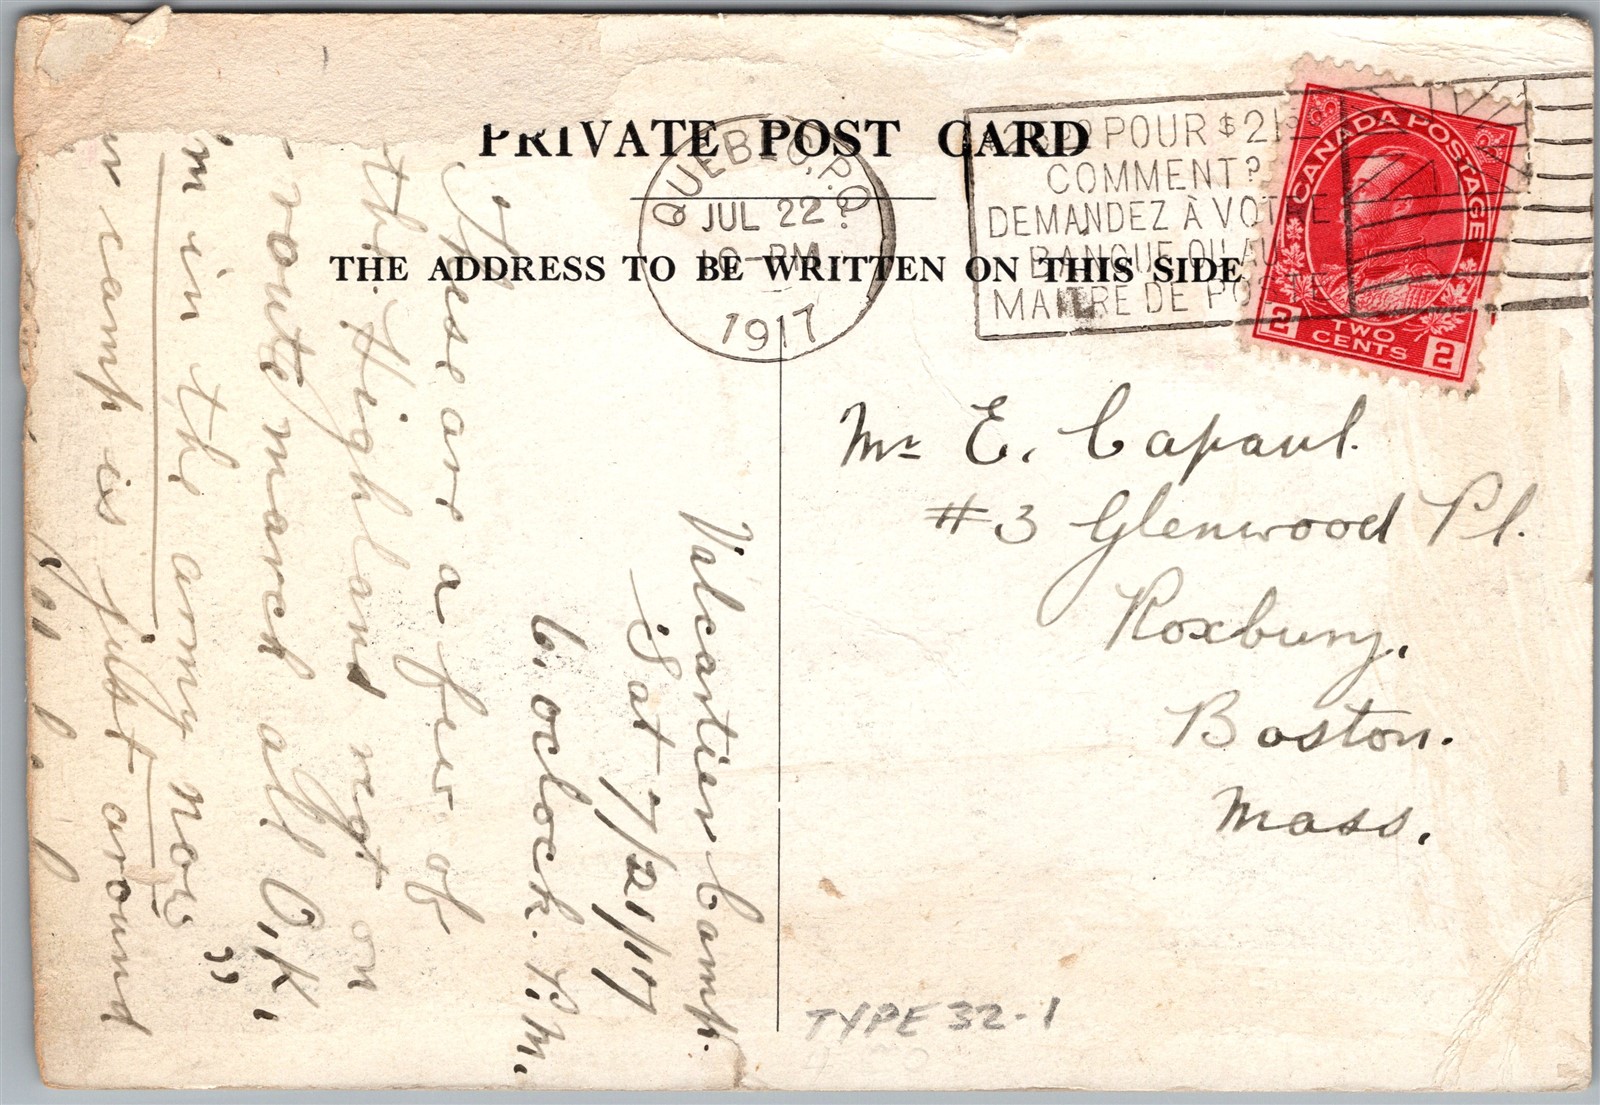 PRIVATE POST CARD
THE ADDRESS TO BE WRITTEN ON THIS SIDE
QUEBEC, P.Q.
JUL 22
10-PM
1917
POUR $21
COMMENT?
DEMANDEZ À VOTRE
BANQUE OU AU
MAITRE DE POSTE
CANADA POSTAGE
2 TWO CENTS 2
Mr E. Capaul.
#3 Glenwood Pl.
Roxbury.
Boston.
Mass.
TYPE 32-1
Valcartier Camp.
Sat 7/21/17
6. oclock. P.M.
These are a few of
the Highland regt on
route march all O.K.
"
in in the army now
camp is just around